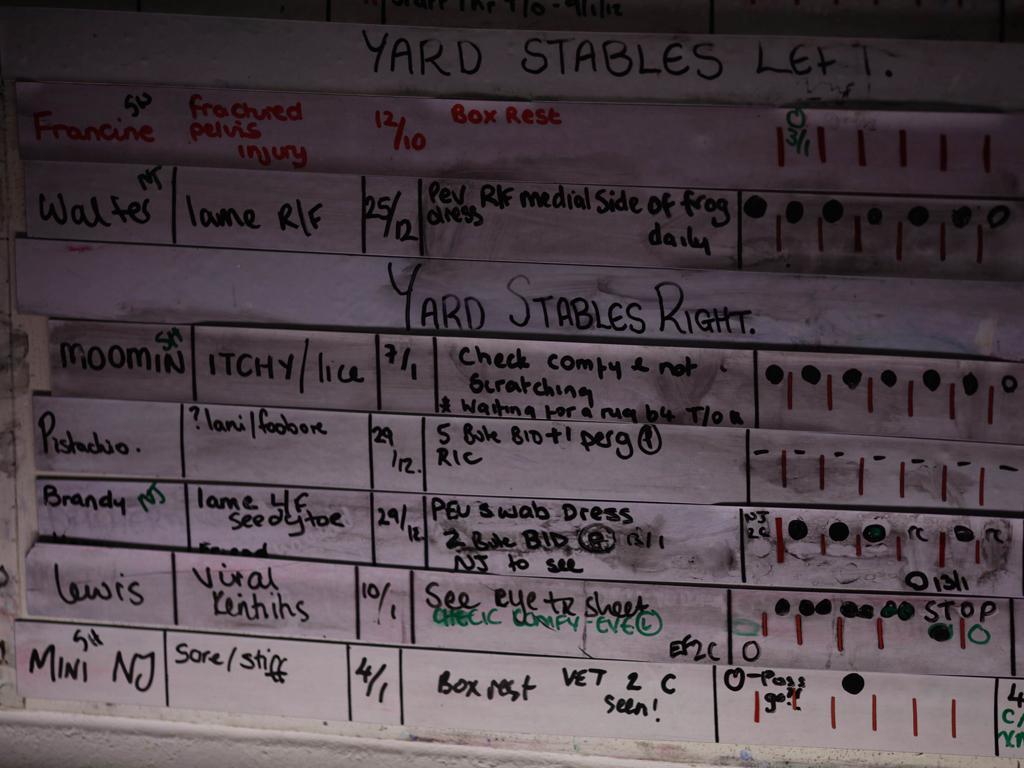 T/O - 9/1/12
YARD STABLES LEFT.
Francine SH fractured pelvis injury 12/10 Box Rest 3/1
Walter NJ lame R/F 25/12 Pev R/F medial side of frog
dress daily
YARD STABLES RIGHT.
MOOMIN SH ITCHY/lice 7/1 Check comfy & not
Scratching
* Waiting for a rug b4 T/O
Pistachio. ? lami/footsore 29/12. 5 Bute BID + 1 perg
R/C
Brandy NJ lame L/F 29/12 PEV SWAB Dress NJ 2C rc rc
Seedytoe 2 Bute BID
NJ to see 13/1
Lewis Viral 10/1 See eye tr sheet STOP
CHECK COMFY-EYE L
EF2C
MINI NJ SH Sore/stiff 4/1 Box rest VET 2 C
seen!